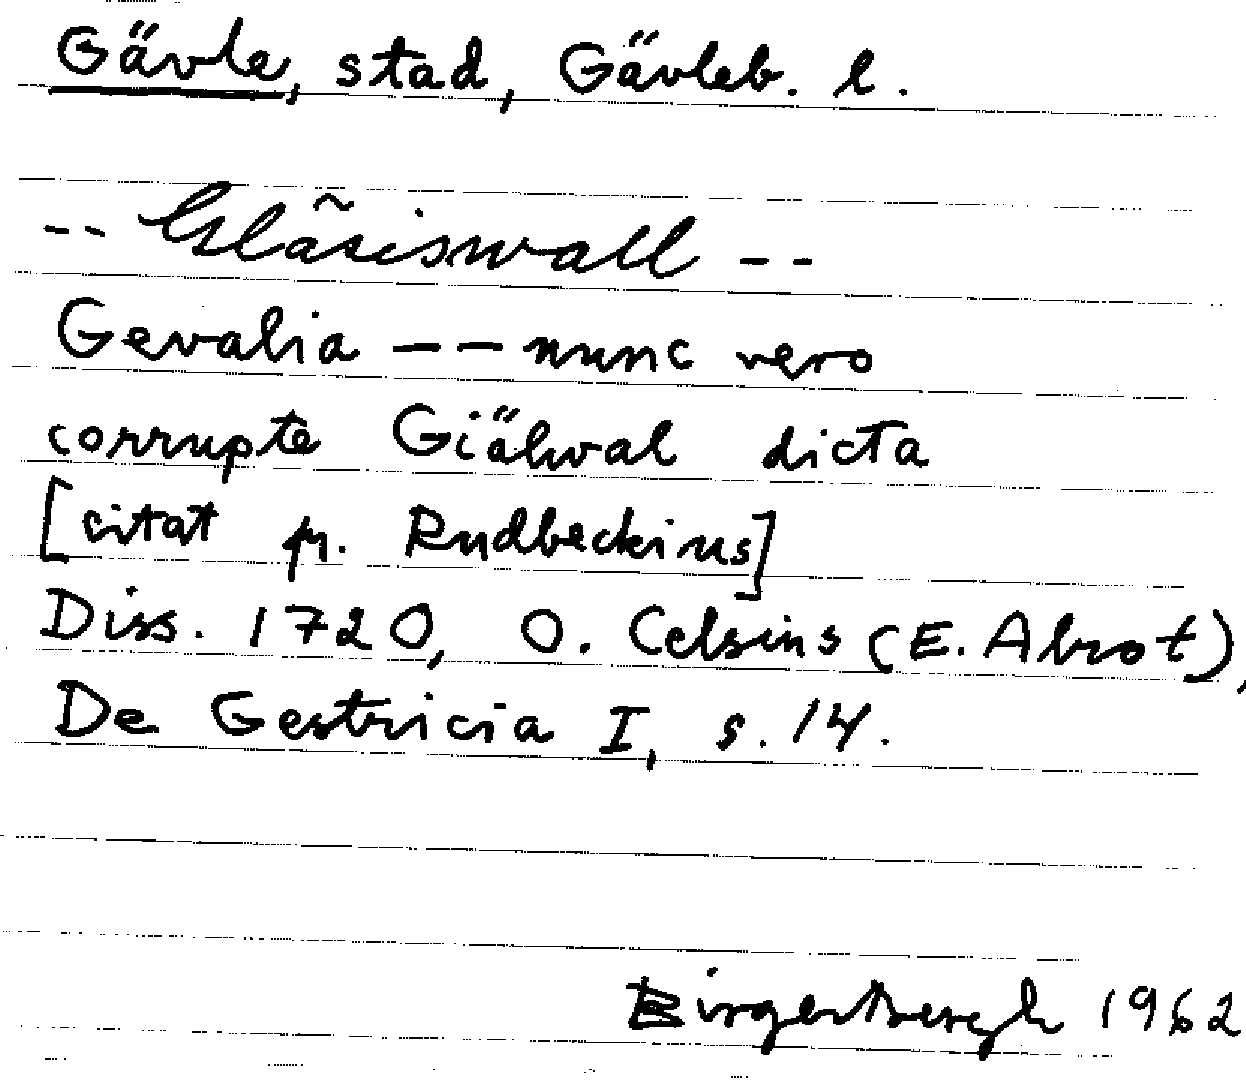 Gävle, stad, Gävleb. l.
-- Gläsiswall --
Gevalia -- nunc vero
corrupte Giälwal dicta
[citat fr. Rudbeckius]
Diss. 1720, O. Celsius (E. Abrot),
De Gestricia I, s. 14.
Birger Bergh 1962